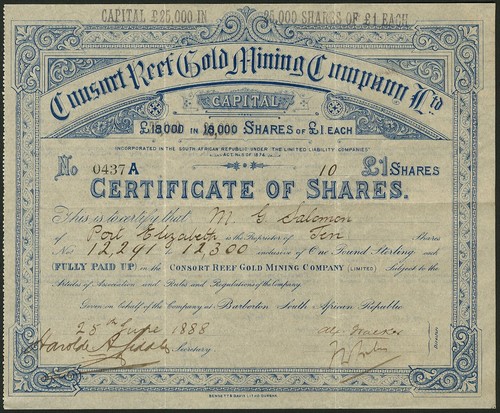 CAPITAL £25,000 IN 25,000 SHARES OF £1 EACH
Consort Reef Gold Mining Company Ltd
CAPITAL
£18000 IN 18,000 SHARES OF £1 EACH
INCORPORATED IN THE SOUTH AFRICAN REPUBLIC UNDER "THE LIMITED LIABILITY COMPANIES'
ACT, No. 5 OF 1874
No 0437 A 10 £1 SHARES
CERTIFICATE OF SHARES.
This is to certify that M. G. Salomon
of Port Elizabeth is the Proprietor of Ten Shares
Nos 12,291 to 12,300 inclusive of One Pound Sterling each
(FULLY PAID UP) in the CONSORT REEF GOLD MINING COMPANY (LIMITED) Subject to the
Articles of Association and Rules and Regulations of the Company.
Given on behalf of the Company at Barberton South African Republic
28th June 1888
Harold A. Secretary. Directors
BENNETT & DAVIS LITHO DURBAN.